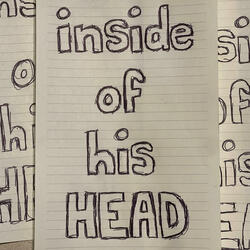 inside
of
his
HEAD